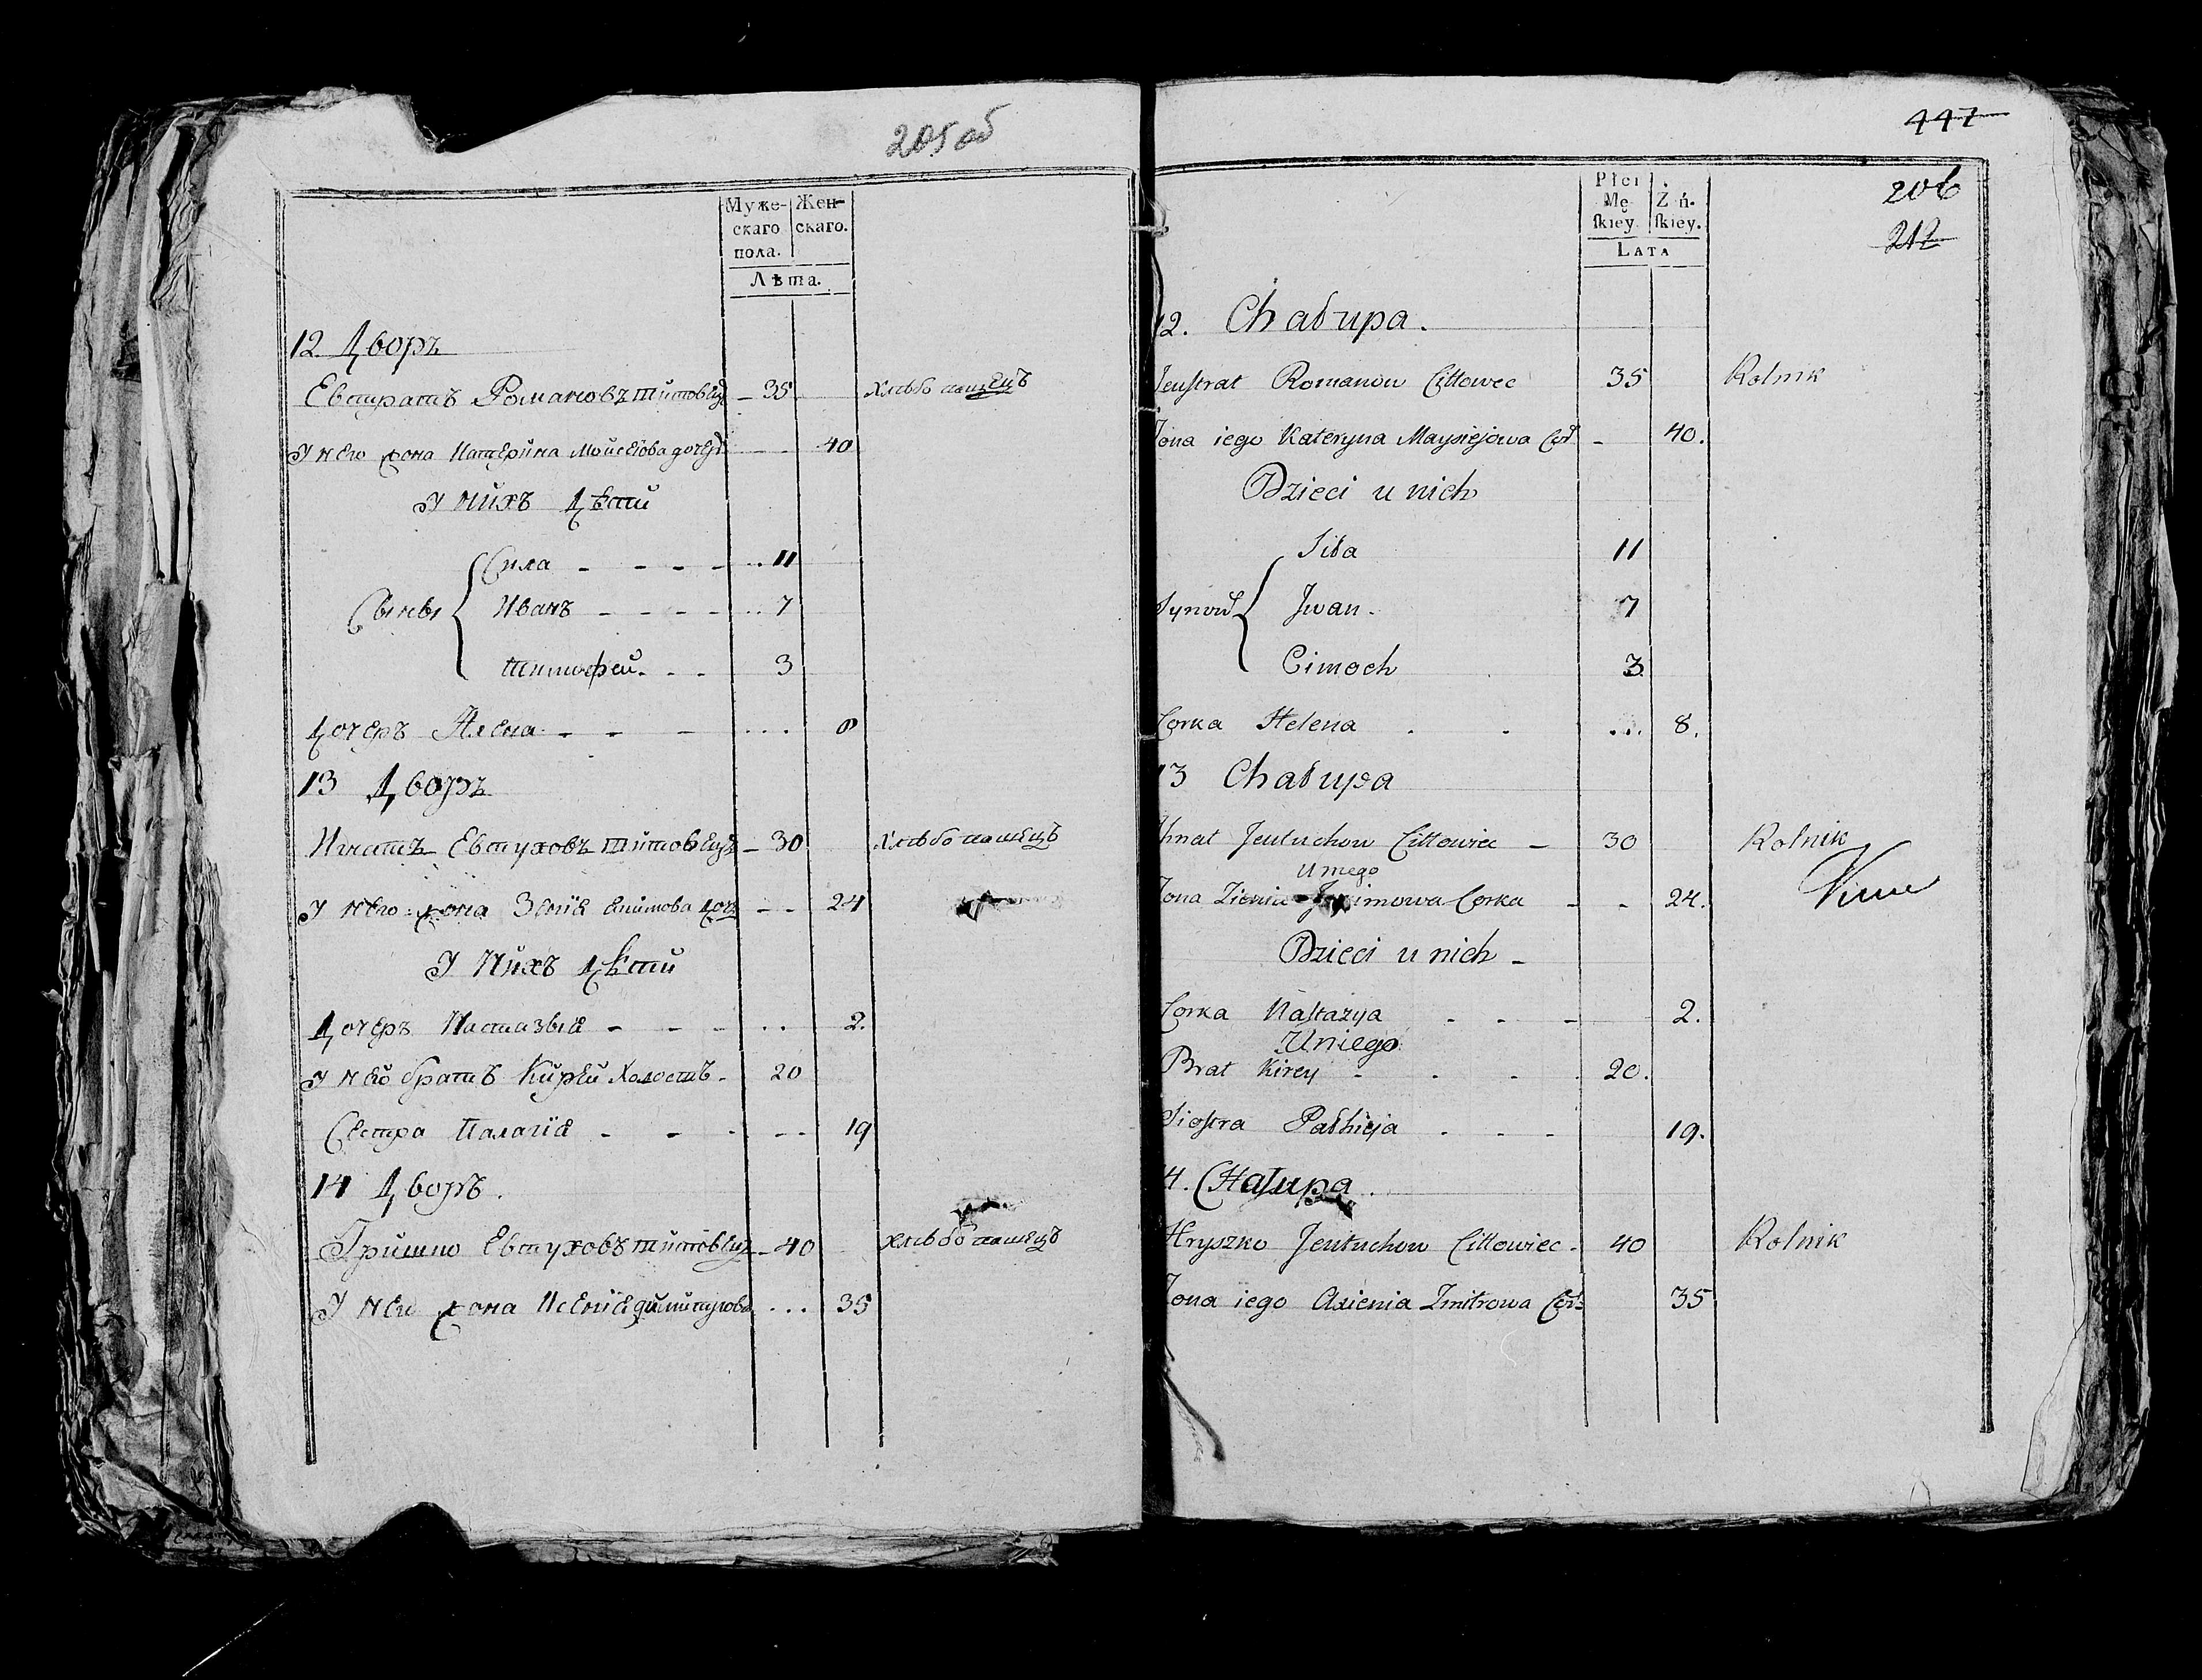 205 об
Муже-
скаго
пола.
Жен-
скаго.
Лѣта.
12. Дворъ
Евстратъ Романовъ титовецъ – 35 хлѣбопашецъ
У него жона Катерина Мойсеёва дочеръ 40
У нихъ Дѣти
Сыны
Сила 11
Иванъ 7
тимофей 3
Дочеръ Алена 8
13 Дворъ
Игнатъ Евтуховъ титовецъ – 30 хлѣбопашецъ
У него жона Зеніе 24
У Нихъ дѣти
Дочеръ Настазыя 2.
У него братъ Кирей Холостъ 20
Сестра Палагіе 19
14 Дворъ.
Гришко Евтуховъ титовецъ – 40 хлѣбопашецъ
У него жона Ксеніе димитрова 35
447
206
212
Płci
Mę
ſkiey.
Ż ń-
ſkiey.
LATA
12. Chałupa.
Jeuſtrat Romanow Cittowec 35 Rolnik
Żona iego Kateryna Maysiejowa 40.
Dzieci u nich
Synow
Siła 11
Jwan 7
Cimoch 3
Corka Helena 8.
13 Chałupa
Ihnat Jeutuchow Cittowiec – 30 Rolnik
U niego
Żona Zienia Corka 24.
Dzieci u nich –
Corka Naſtazya 2.
U niego
Brat Kirey 20.
Sioſtra Pałhieja 19.
14. CHałupa.
Hryszko Jeutuchow Cittowiec 40 Rolnik
Żona iego Axienia Zmitrowa 35